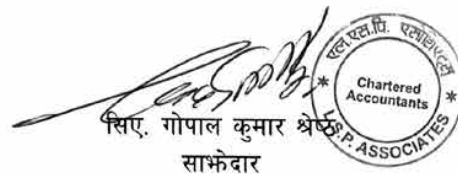 एल.एस.पि. एसोशिएट्स
Chartered
Accountants
L.S.P. ASSOCIATES
सिए. गोपाल कुमार श्रेष्ठ
साझेदार